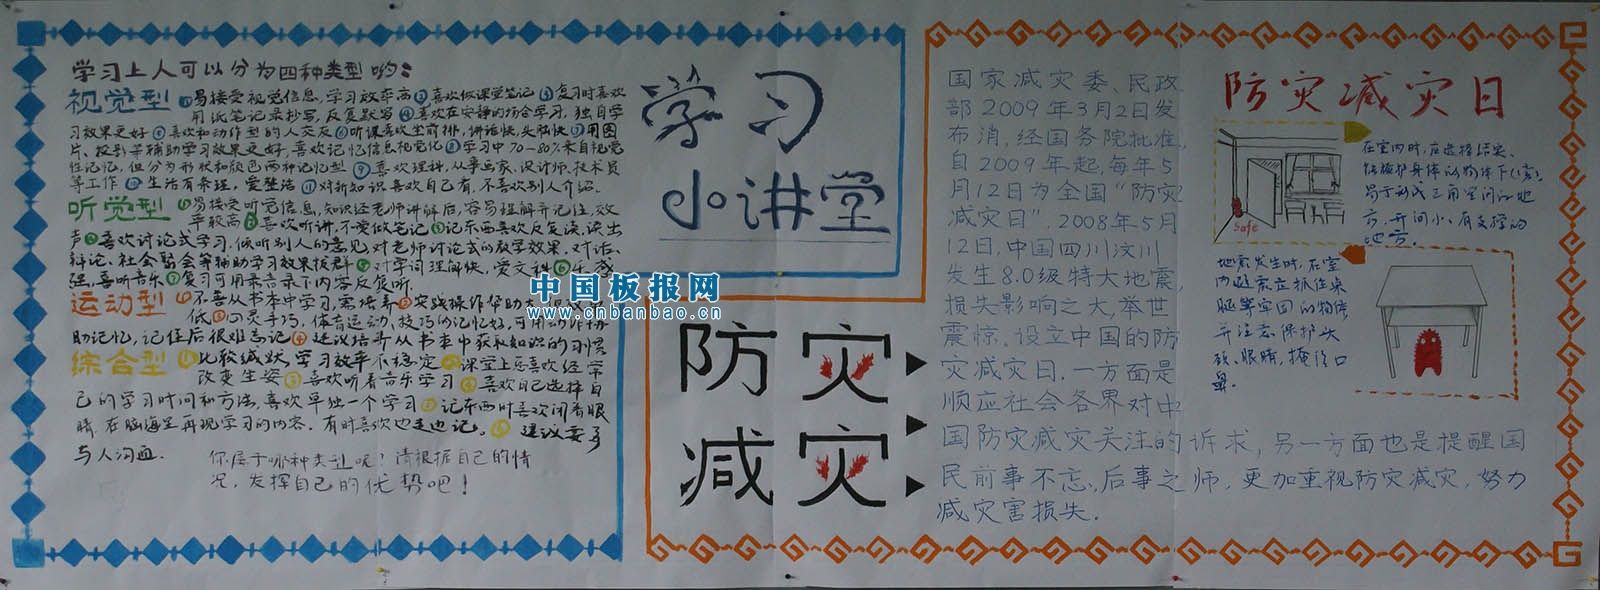 学习上人可以分为四种类型哟：
视觉型 ①易接受视觉信息，学习效率高②喜欢做课堂笔记③复习时喜欢
用纸笔记录抄写，反复默写④喜欢在安静的场合学习，独自学
习效果更好⑤喜欢和动作型的人交友⑥听课喜欢坐前排，讲话快，头脑快⑦用图
片、投影等辅助学习效果更好，喜欢记忆信息视觉化⑧学习中70-80%来自视觉
性记忆，但分为形状和颜色两种记忆型⑨喜欢理科，从事画家、设计师、技术员
等工作⑩生活有条理，爱整洁⑪对新知识喜欢自己看，不喜欢别人介绍.
听觉型 ①易接受听觉信息，知识经老师讲解后，容易理解并记住，效
率较高②喜欢听讲，不爱做笔记③记东西喜欢反复读，读出
声④喜欢讨论式学习，倾听别人的意见，对老师讨论式的教学效果.对话、
辩论、社会聚会等辅助学习效果拔群⑤对单词理解快，爱文科⑥乐感
强，喜听音乐⑦复习可用录音录下内容反复听.
运动型 ①不喜从书本中学习，需培养②实践操作帮助大
低③心灵手巧，体育运动、技巧的记忆好，可用动作协
助记忆，记住后很难忘记④建议培养从书本中获取知识的习惯
综合型 ①比较城状，学习效率不稳定②课堂上总喜欢经常
改变坐姿③喜欢听着音乐学习④喜欢自己选择自
己的学习时间和方法，喜欢单独一个学习⑤记东西时喜欢闭着眼
睛，在脑海里再现学习的内容.有时喜欢也走边记。⑥建议要多
与人沟通.
你属于哪种类型呢？请根据自己的情
况，发挥自己的优势吧！
学习
小讲堂
中国板报网
www.cnbanbao.cn
防灾
减灾
国家减灾委、民政
部2009年3月2日发
布消，经国务院批准，
自2009年起，每年5
月12日为全国“防灾
减灾日”.2008年5月
12日，中国四川汶川
发生8.0级特大地震，
损失影响之大，举世
震惊.设立中国的防
灾减灾日，一方面是
顺应社会各界对中
国防灾减灾关注的诉求，另一方面也是提醒国
民前事不忘、后事之师，更加重视防灾减灾，努力
减灾害损失.
防灾减灾日
在室内时，应选择结实、
能掩护身体的物体下(旁)、
易于形成三角空间的地
方，开间小、有支撑的
地方.
safe
地震发生时，在室
内就就应抓住桌
腿等牢固的物体
并注意保护头
颈、眼睛，掩住口
鼻.